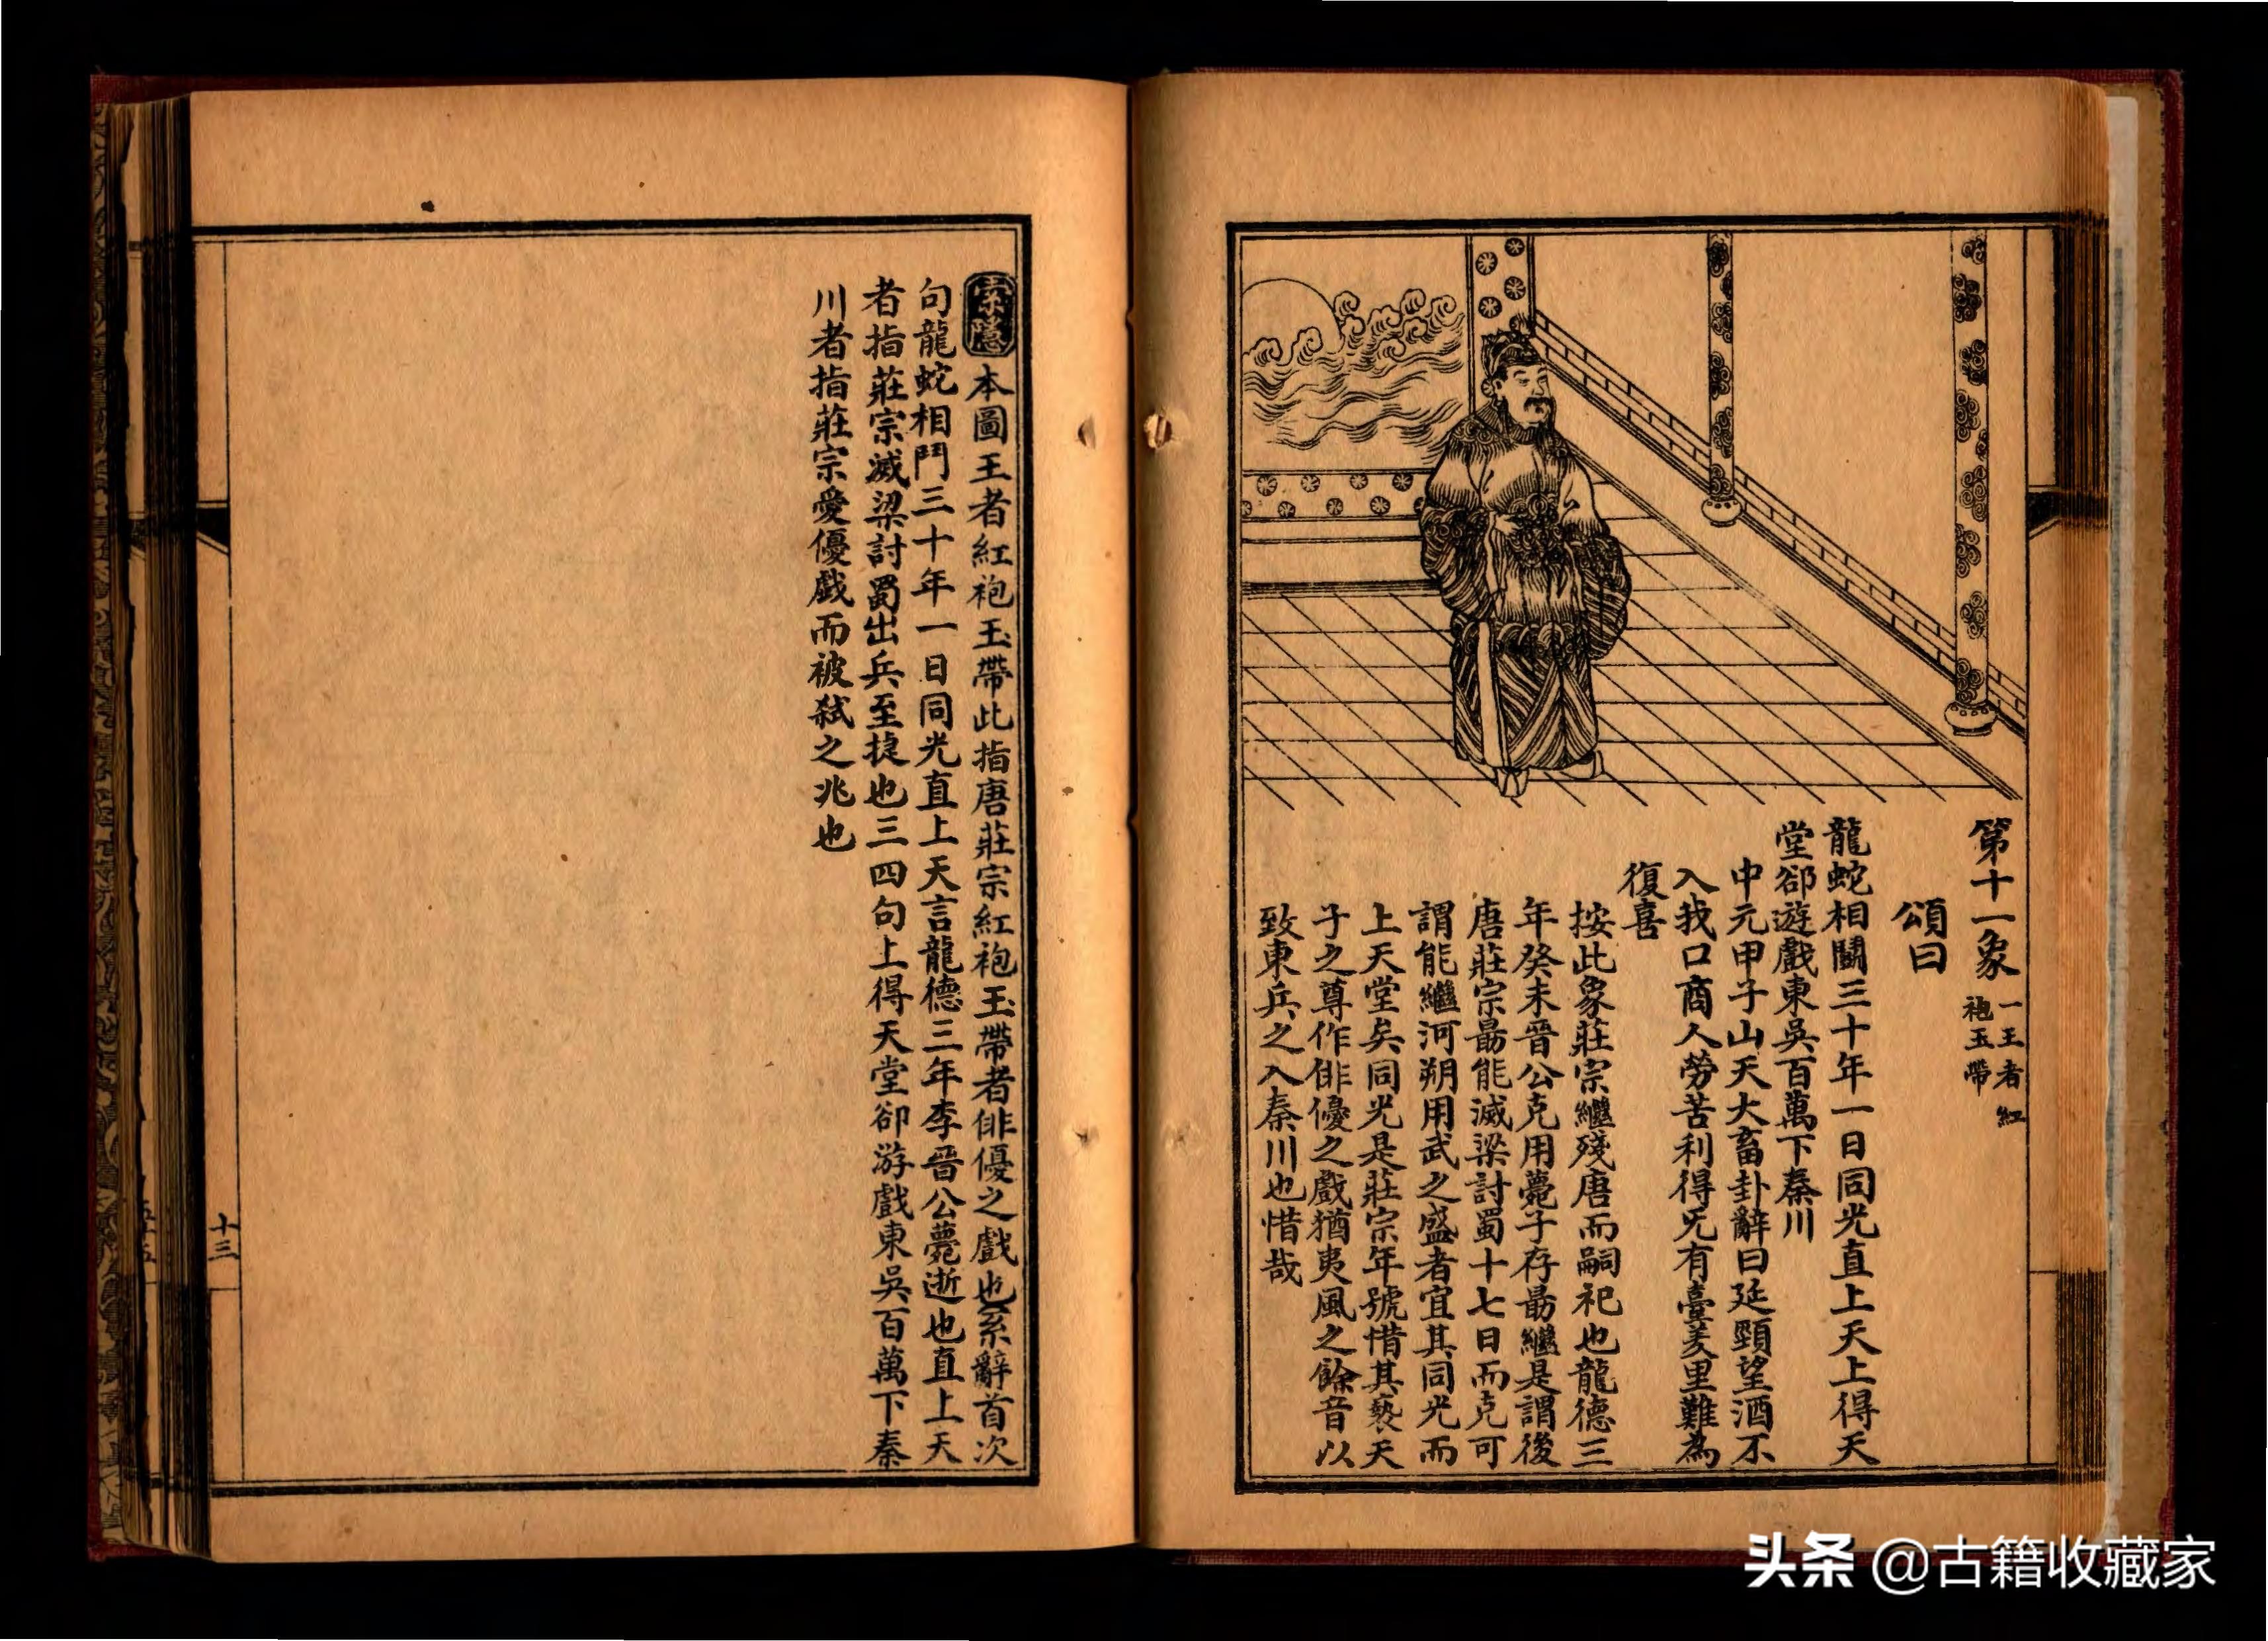 第十一象
一王者紅
袍玉帶
頌曰
龍蛇相鬪三十年一日同光直上天上得天
堂卻遊戲東吳百萬下秦川
中元甲子山天大畜卦辭曰延頸望酒不
入我口商人勞苦利得旡有臺羑里難為
復喜
按此象莊宗繼殘唐而嗣祀也龍德三
年癸未晉公克用薨子存勗繼是謂後
唐莊宗勗能滅梁討蜀十七日而克可
謂能繼河朔用武之盛者宜其同光而
上天堂矣同光是莊宗年號惜其褻天
子之尊作俳優之戲猶夷風之餘音以
致東兵之入秦川也惜哉
索隱本圖王者紅袍玉帶此指唐莊宗紅袍玉帶者俳優之戲也系辭首次
句龍蛇相鬥三十年一日同光直上天言龍德三年李晉公薨逝也直上天
者指莊宗滅梁討蜀出兵至捷也三四句上得天堂卻游戲東吳百萬下秦
川者指莊宗愛優戲而被弑之兆也
十三
头条 @古籍收藏家